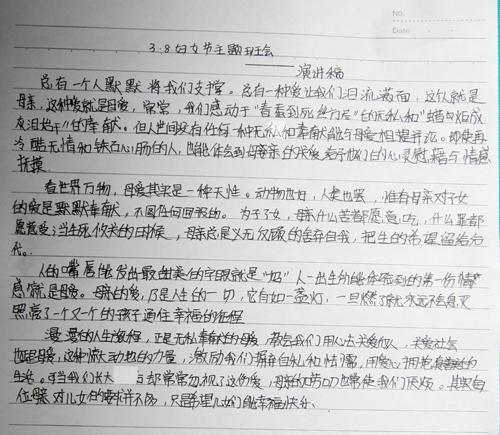 No.
Date
3.8妇女节主题班会
——演讲稿
总有一个人默默将我们支撑。总有一种爱让我们泪流满面，这个人就是
母亲，这种爱就是母爱，常常，我们感动于"春蚕到死丝方尽"的无私和"蜡炬成
灰泪始干"的奉献。但人世间没有任何一种无私和奉献能与母爱相提并论。即使再
冷酷无情和铁石心肠的人，也能体会到母亲的关爱给予他们的心灵慰藉与情感
抚摸
看世界万物，母爱其实是一种天性。动物世界，人类也罢，唯有母亲对子女
的爱是默默奉献，不图任何回报的。为了子女，母亲什么苦都愿意吃，什么罪都
愿意受；当生死攸关的时候，母亲总是义无反顾的舍弃自我，把生的希望留给后
代。
人的嘴唇能发出最甜美的字眼就是"妈"人一出生所能体验到的第一份情
感就是母爱。母亲的爱，乃是人生的一切，它自如一盏灯，一旦燃了就永远不会息灭
照亮了一个又一个的孩子通往幸福的征程
漫漫的人生旅程，正是无私奉献的母爱，带给我们用心去关爱他人，关爱社会
也是母爱，这种惊天动地的力量，激励我们摒弃自私和怯懦，用爱心拥抱
生活。可当我们长大 却常常忽视了这份爱，母亲的唠叨也常使我们厌烦。其实每
位母亲对儿女的要求并不多，只是希望儿女们能幸福快乐、